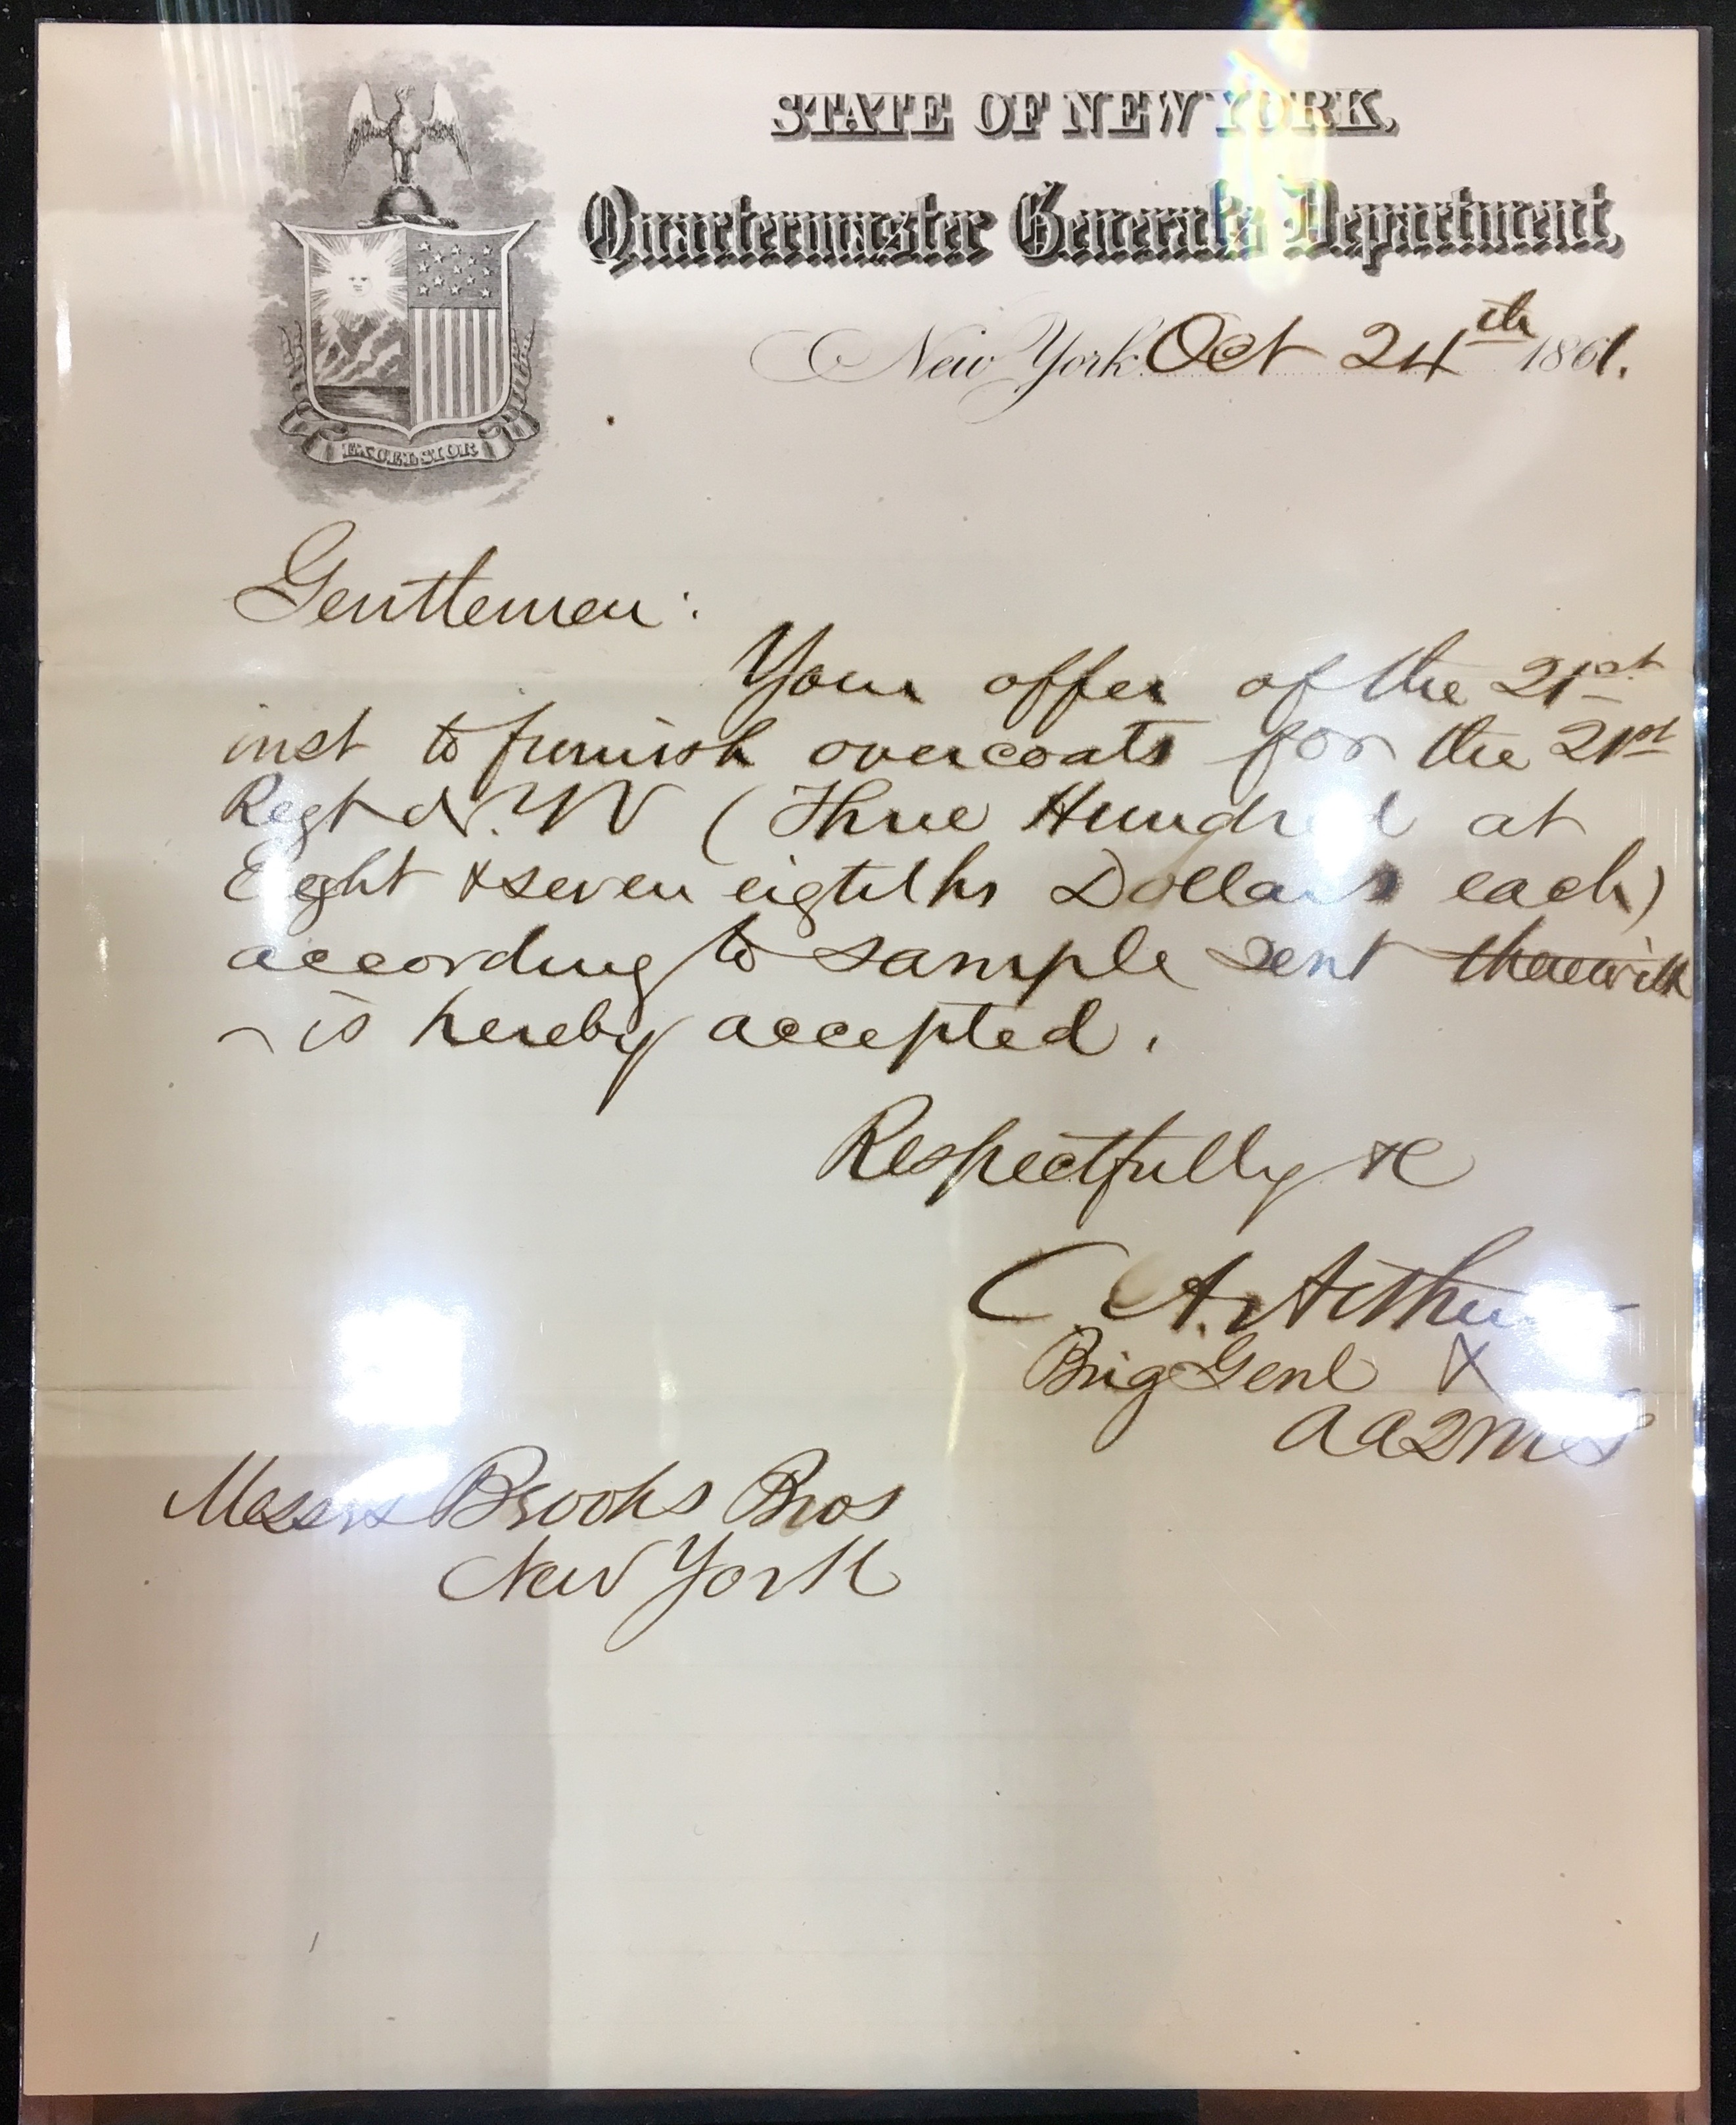 STATE OF NEW YORK,
Quartermaster General's Department,
New York Oct 24th 1861.
EXCELSIOR
Gentlemen:
Your offer of the 21st
inst to furnish overcoats for the 21st
Regt N.YV (Three Hundred at
Eight & seven eigtlths Dollars each)
according to sample sent therewith
is hereby accepted.
Respectfully &c
C. A. Arthur
Brig Genl &
AAQMG
Messrs Brooks Bros
New York